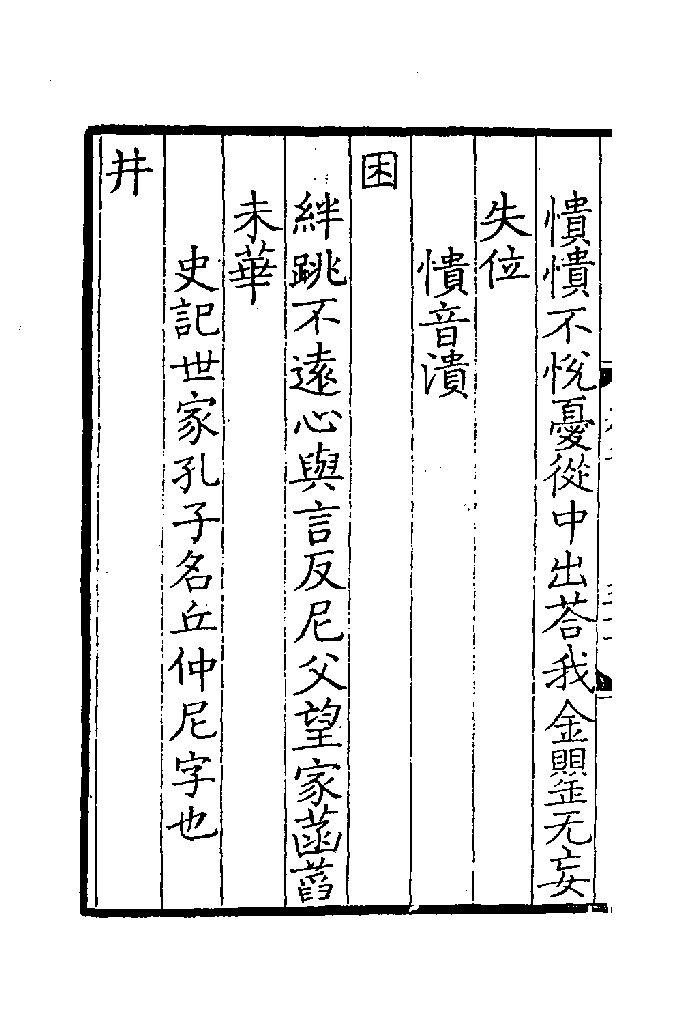 憒憒不悅憂從中出荅我金罌无妄
失位
憒音潰
困
絆跳不遠心與言反尼父望家菡萏
未華
史記世家孔子名丘仲尼字也
井